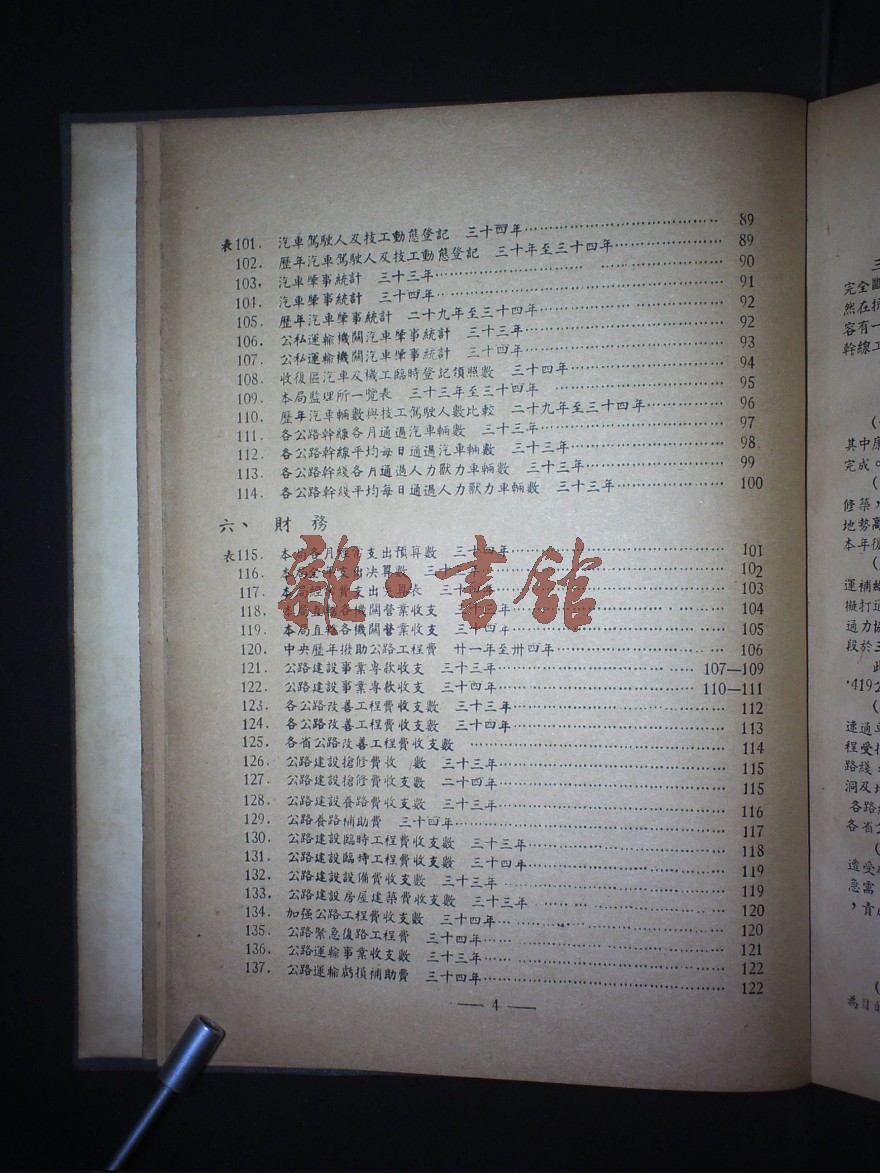 表101. 汽車駕駛人及技工動態登記 三十四年 89
102. 歷年汽車駕駛人及技工動態登記 三十年至三十四年 89
103. 汽車肇事統計 三十三年 90
104. 汽車肇事統計 三十四年 91
105. 歷年汽車肇事統計 二十九年至三十四年 92
106. 公私運輸機關汽車肇事統計 三十三年 92
107. 公私運輸機關汽車肇事統計 三十四年 93
108. 收復區汽車及機工臨時登記領照數 三十四年 94
109. 本局監理所一覽表 三十三年至三十四年 95
110. 歷年汽車輛數與技工駕駛人數比較 二十九年至三十四年 96
111. 各公路幹線各月通過汽車輛數 三十三年 97
112. 各公路幹線平均每日通過汽車輛數 三十三年 98
113. 各公路幹綫各月通過人力獸力車輛數 三十三年 99
114. 各公路幹綫平均每日通過人力獸力車輛數 三十三年 100
六、 財務
表115. 本局各月經常支出預算數 三十四年 101
116. 本局全年支出決算數 三十 年 102
117. 本局經 費支出 算表 三十四年 103
118. 本局直轄各機關營業收支 三十三年 104
119. 本局直轄各機關營業收支 三十四年 105
120. 中央歷年撥助公路工程費 廿一年至卅四年 106
121. 公路建設事業專款收支 三十三年 107—109
122. 公路建設事業專款收支 三十四年 110—111
123. 各公路改善工程費收支數 三十三年 112
124. 各公路改善工程費收支數 三十四年 113
125. 各省公路改善工程費收支數 114
126. 公路建設搶修費收 數 三十三年 115
127. 公路建設搶修費收支數 二十四年 115
128. 公路建設養路費收支數 三十三年 116
129. 公路養路補助費 三十四年 117
130. 公路建設臨時工程費收支數 三十三年 118
131. 公路建設臨時工程費收支數 三十四年 119
132. 公路建設設備費收支數 三十三年 119
133. 公路建設房屋建築費收支數 三十三年 120
134. 加强公路工程費收支數 三十四年 120
135. 公路緊急復路工程費 三十四年 121
136. 公路運輸事業收支數 三十三年 122
137. 公路運輸虧損補助費 三十四年 122
— 4 —
雜·書館
三
完全斷
然在抗
容有一
幹線工
(
其中康
完成。
(
修築，
地勢高
本年復
(
運補給
擬打通
通力協
段於三
此
·419公
(
速通車
程受挫
路綫
洞及
各路
各省公
(
遭受
急需
，責成
(
為目的